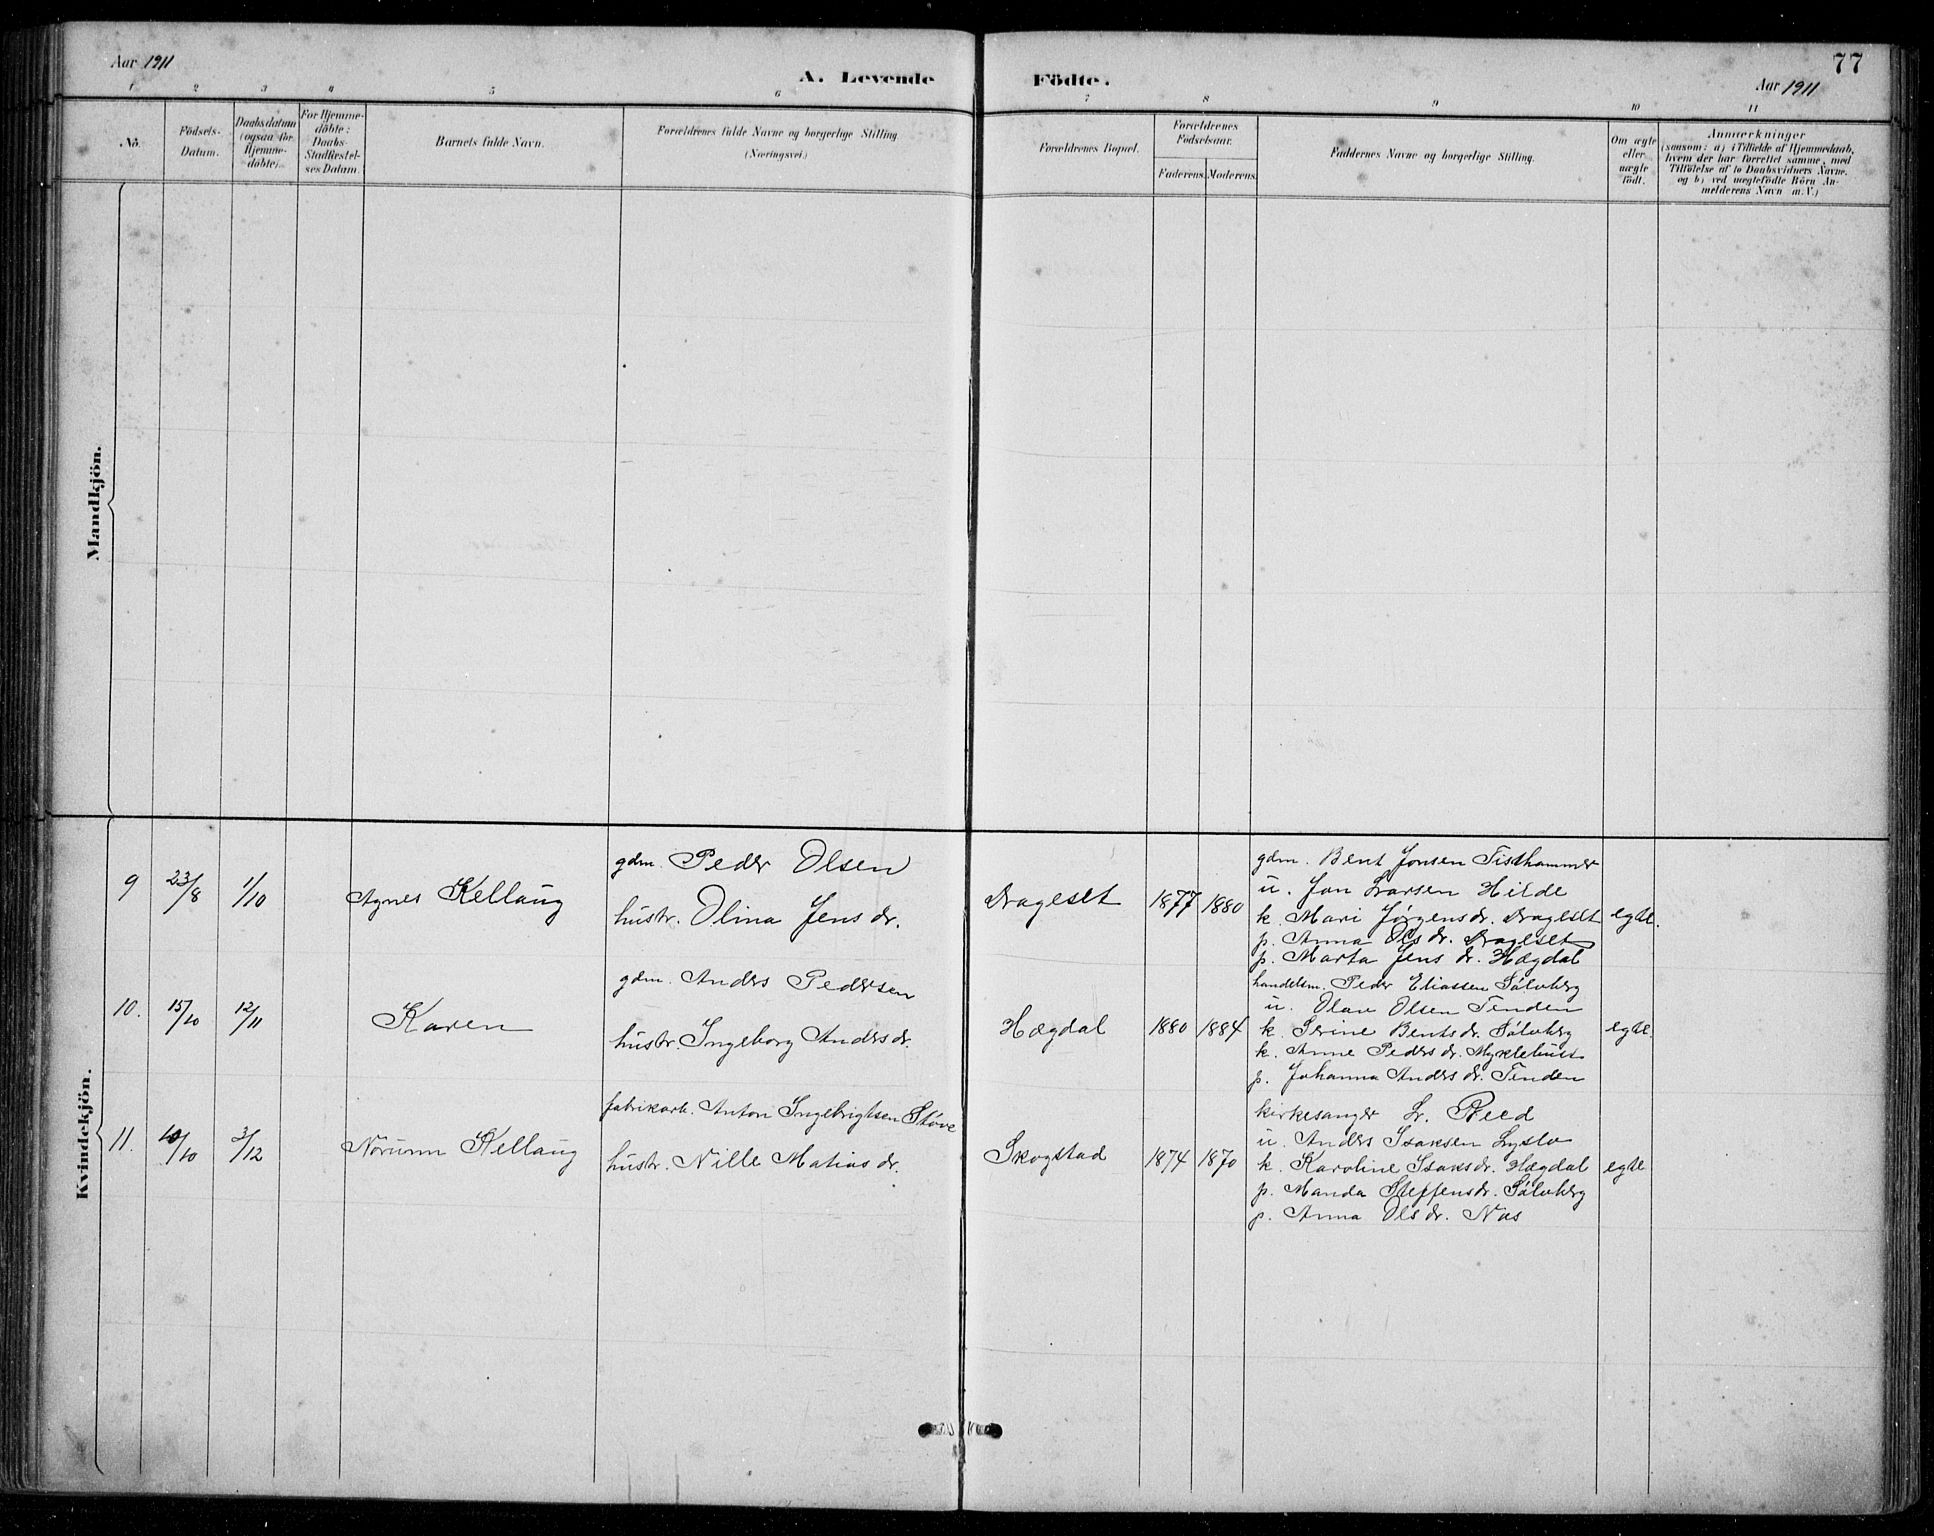 77
Aar 1911
A. Levende Födte.
Aar 1911
1 2 3 4 5 6 7 8 9 10 11
No.
Födsels-
Datum.
Daabsdatum
(ogsaa for
Hjemme-
döbte).
For Hjemme-
döbte:
Daabs-
Stadfæstel-
ses Datum.
Barnets fulde Navn.
Forældrenes fulde Navne og borgerlige Stilling
(Næringsvei.)
Forældrenes Bopæl.
Forældrenes
Födselsaar.
Faderens. Moderens.
Faddernes Navne og borgerlige Stilling.
Om ægte
eller
uægte
födt.
Anmærkninger
(saasom: a) i Tilfælde af Hjemmedaab,
hvem der har forrettet samme, med
Tilföielse af to Daabsvidners Navne.
og b) ved uægtefödte Börn An-
melderens Navn m.V.)
Mandkjön.
Kvindekjön.
9 23/8 1/10 Agnes Kellaug
gdm. Peder Olsen
hustr. Olina Jensdr.
Drageset 1877 1880
gdm. Bent Jonsen Tisthammer
u. Jon Larsen Hilde
k. Mari Jørgensdr. Drageset
p. Anna Olsdr. Drageset
p. Marta Jensdr. Hægdal
egte.
10. 15/10 12/11 Karen
gdm. Anders Pedersen
hustr. Ingeborg Andersdr.
Hægdal 1880 1884
handelsm. Peder Eliassen Sølvberg
u. Olav Olsen Tenden
k. Serine Bentsdr. Sølvberg
k. Anne Pedersdr. Myklebust
p. Johanna Andersdr. Tenden
egte.
11. 10/10 3/12 Norunn Kellaug
fabrikarb. Anton Ingebrigtsen Støve
hustr. Nille Matiasdr.
Skogstad 1874 1870
kirkesanger L. Reed
u. Anders Isaksen Lyslo
k. Karoline Isaksdr. Hægdal
p. Manda Steffensdr. Sølvberg
p. Anna Olsdr. Nos
egte